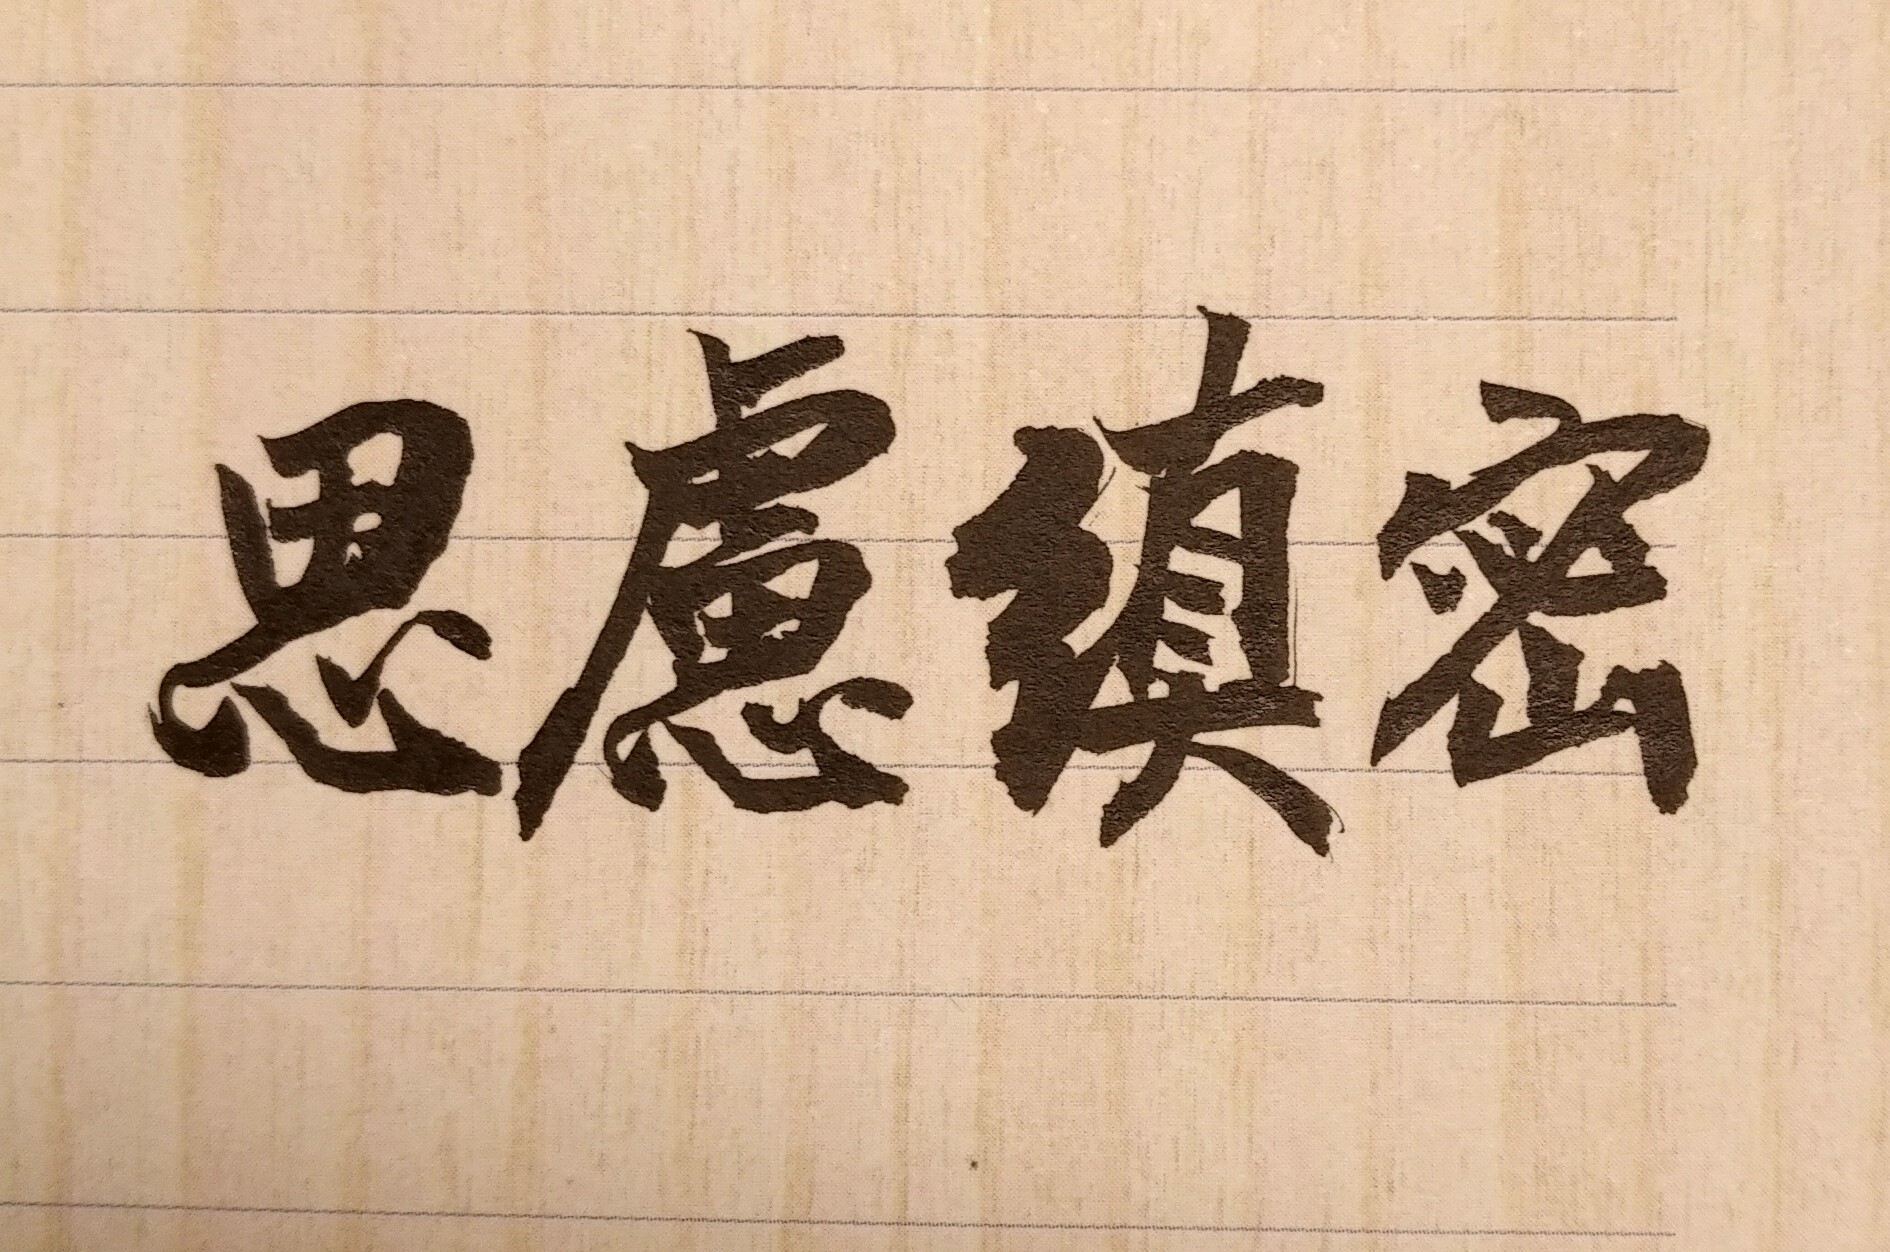 思慮縝密